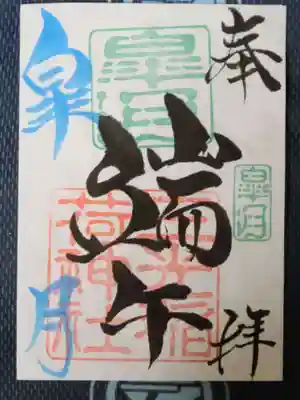 奉拝
皐月
皐月
端午
荷神社
皐月